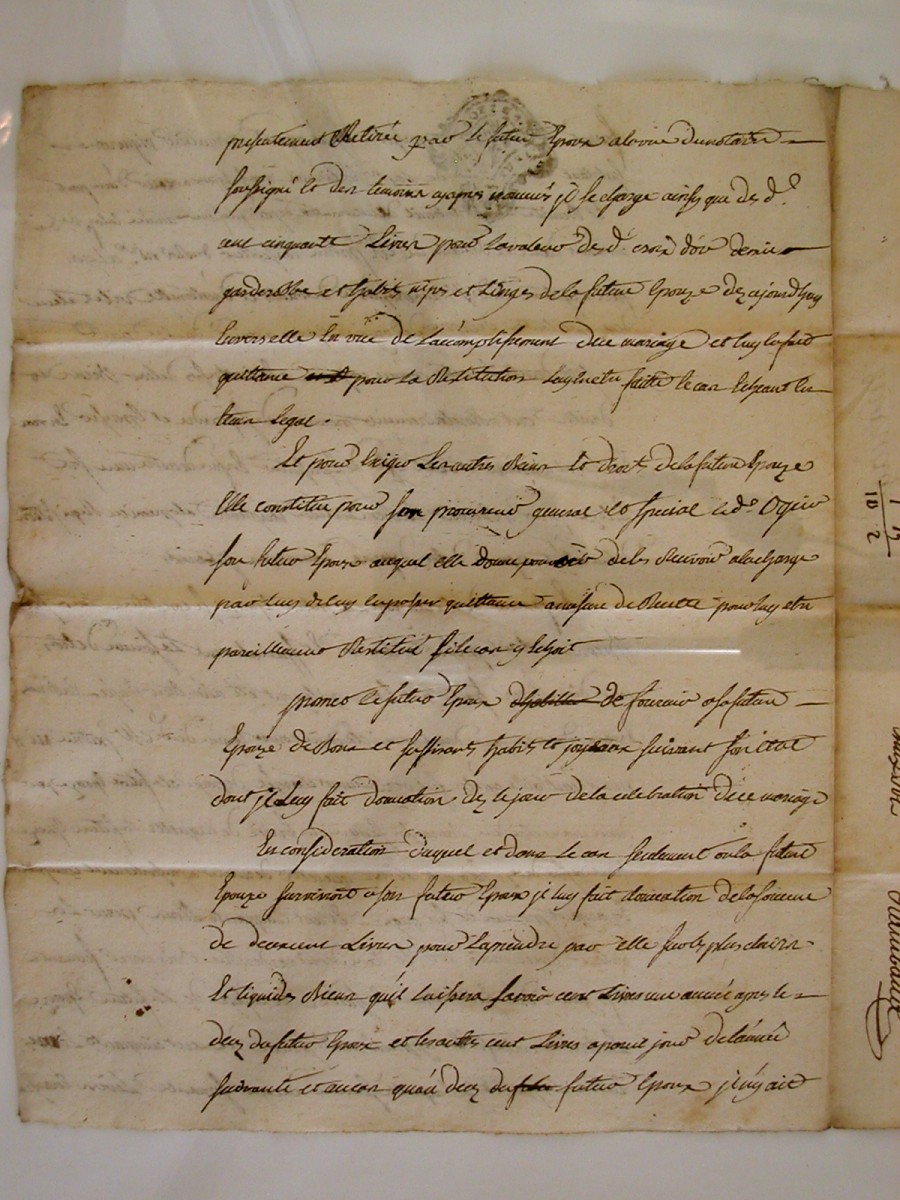 presentement Retirée par le futur Epoux a la vue du notaire
soussigné et des temoins cy apres nommés jl se charge ainsy que des d.
cent cinquante Livres pour la valeur des d. croix d'or
garderobbe et habits nipes et Linges de la future Epouze dez ajourdhuy
Envers elle En vüe de L'acomplissement dud mariage et luy en fait
quittance pour La Restitution luy en etre faitte le cas Echeant En
tems Legal.
Et pour Exiger Les autres Biens Et droits de la future Epouze
Elle constitue pour son procureur general et special led. Ogier
son futur Epoux auquel elle donne pouvoir de les Recevoir a la charge
par luy d'En passer quittance a mesure de Recette pour luy etre
pareillement Restitué sile cas y Echoit
promet le futur Epoux d'habiller de fournir a sa future
Epouze de Bons et suffisants habits et joyaux suivant son Etat
dont jl Luy fait donnation dez le jour de la celebration dud mariage
En consideration duquel et dans le cas seulement ou la future
Epouze survivroit a son futur Epoux jl luy fait donnation de la somme
de deux cent Livres pour La prendre par elle sur les plus clairs
Et liquides Biens qu'il laissera savoir cent Livres une année apres le
dez du futur Epoux et les autres cent Livres a pareil jour de l'année
suivante et au cas qu'au dez du futur Epoux jl n'y ait
10 2